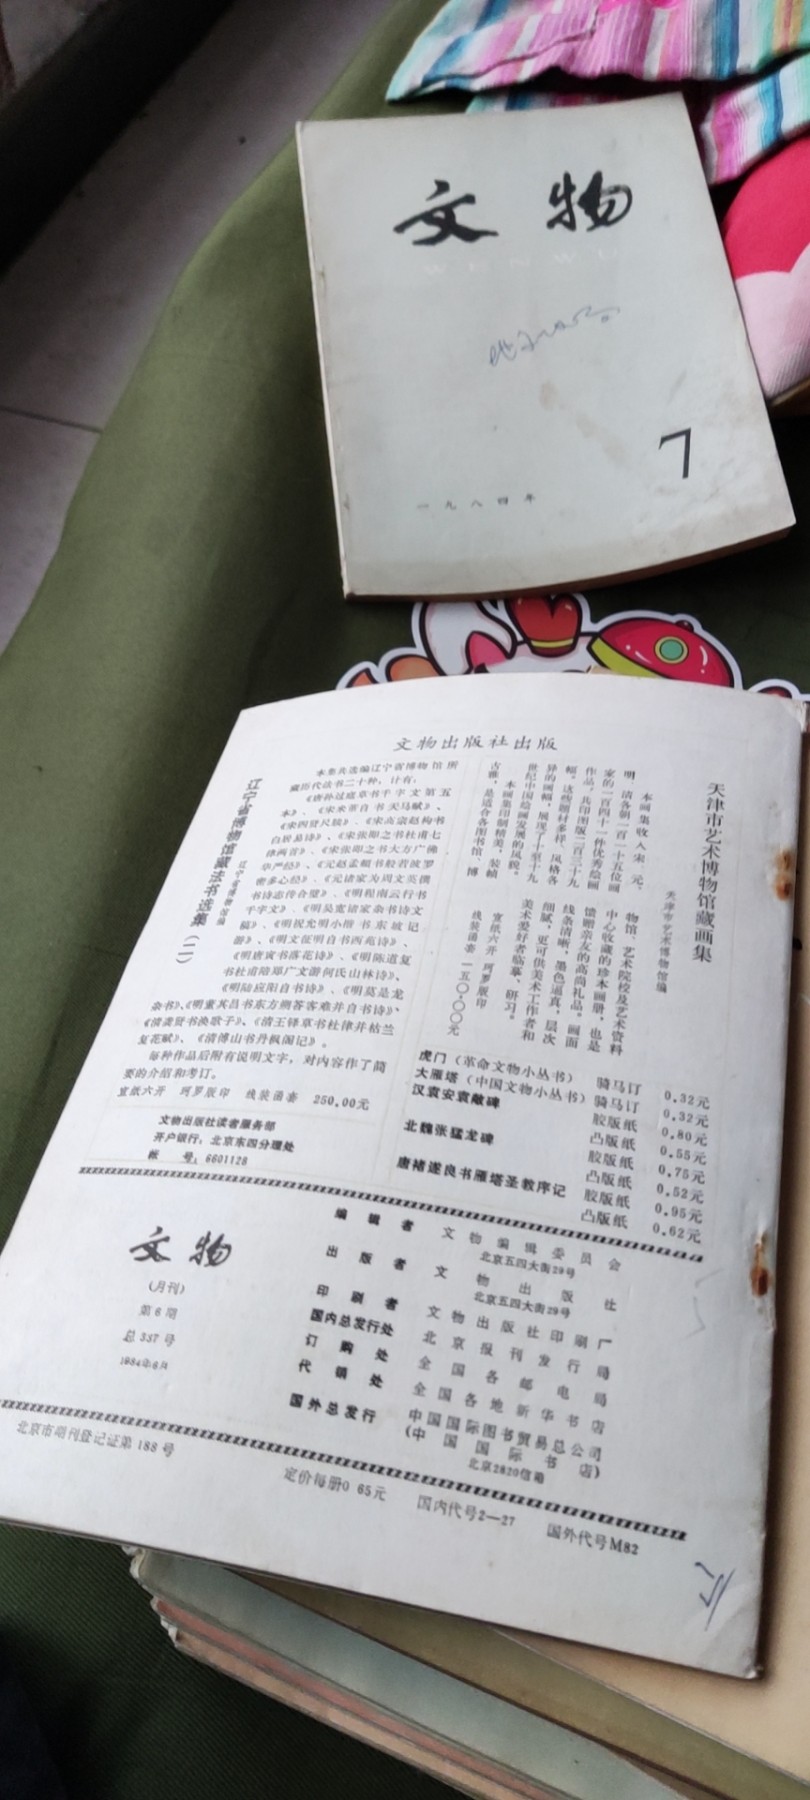 文物
WENWU
7
一九八四年
文物出版社出版
天津市艺术博物馆藏画集
天津市艺术博物馆编
本画集收入宋、元、
明、清各朝一百一十五位画
家的一百四十一件优秀绘画
作品，共印图版二百三十九
幅。这些题材多样、风格各
异的画幅，展现了十至十九
世纪中国绘画发展的风貌。
本画集印制精美，装帧
古雅，是适合各图书馆、博
物馆、艺术院校及艺术资料
中心收藏的珍本画册，也是
馈赠亲友的高尚礼品。画面
线条清晰，墨色逼真，层次
细腻，更可供美术工作者和
美术爱好者临摹、研习。
宣纸六开 珂罗版印
线装函套 一五〇·〇〇元
辽宁省博物馆藏法书选集(二)
辽宁省博物馆编
本集共选编辽宁省博物馆所
藏历代法书二十种，计有：
《唐孙过庭草书千字文第五
本》、《宋米芾自书天马赋》、
《宋四贤尺牍》、《宋高宗赵构书
白居易诗》、《宋张即之书杜甫七
律两首》、《宋张即之书大方广佛
华严经》、《元赵孟頫书般若波罗
密多心经》、《元诸家为周文英撰
书诗志传合璧》、《明程南云行书
千字文》、《明吴宽诸家杂书诗文
稿》、《明祝允明小楷书东坡记
游》、《明文征明自书西苑诗》、
《明唐寅书落花诗》、《明陈道复
书杜甫陪郑广文游何氏山林诗》、
《明陆应阳自书诗》、《明莫是龙
杂书》、《明董其昌书东方朔答客难并自书诗》、
《清龚贤书渔歌子》、《清王铎草书杜律并枯兰
复花赋》、《清傅山书丹枫阁记》。
每种作品后附有说明文字，对内容作了简
要的介绍和考订。
宣纸六开 珂罗版印 线装函套 250.00元
文物出版社读者服务部
开户银行：北京东四分理处
帐 号：6601128
虎门（革命文物小丛书） 骑马订 0.32元
大雁塔（中国文物小丛书） 骑马订 0.32元
汉袁安袁敞碑 胶版纸 0.80元
凸版纸 0.55元
北魏张猛龙碑 胶版纸 0.75元
凸版纸 0.52元
唐褚遂良书雁塔圣教序记 胶版纸 0.95元
凸版纸 0.62元
文物
(月刊)
第6期
总337号
1984年6月
编辑者 文物编辑委员会
北京五四大街29号
出版者 文物出版社
北京五四大街29号
印刷者 文物出版社印刷厂
国内总发行处 北京报刊发行局
订购处 全国各邮电局
代销处 全国各地新华书店
国外总发行 中国国际图书贸易总公司
(中国国际书店)
北京2820信箱
北京市期刊登记证第188号
定价每册0.65元 国内代号2—27 国外代号M82